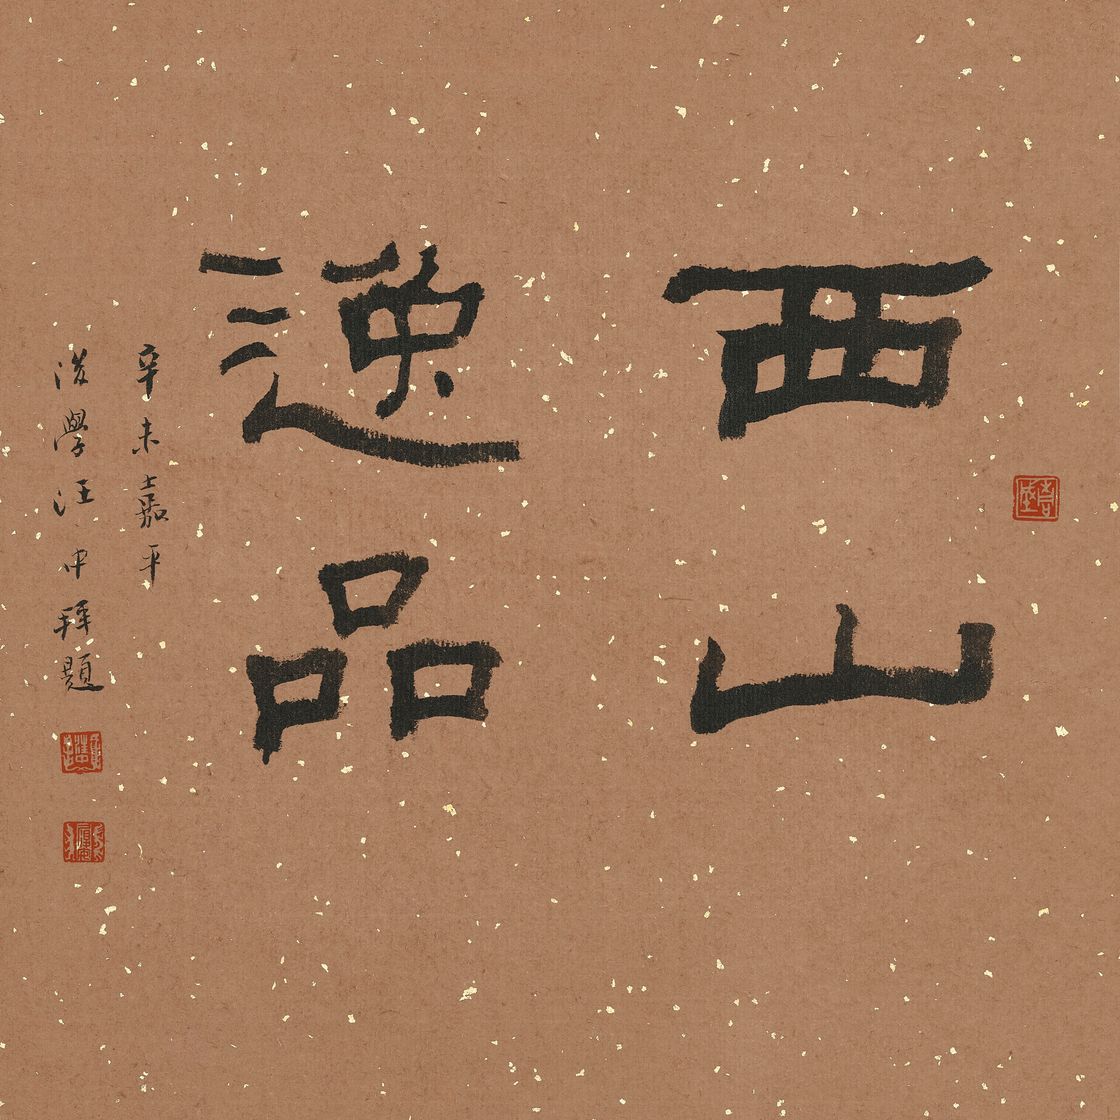 西山
逸品
辛未嘉平
後學汪中拜題